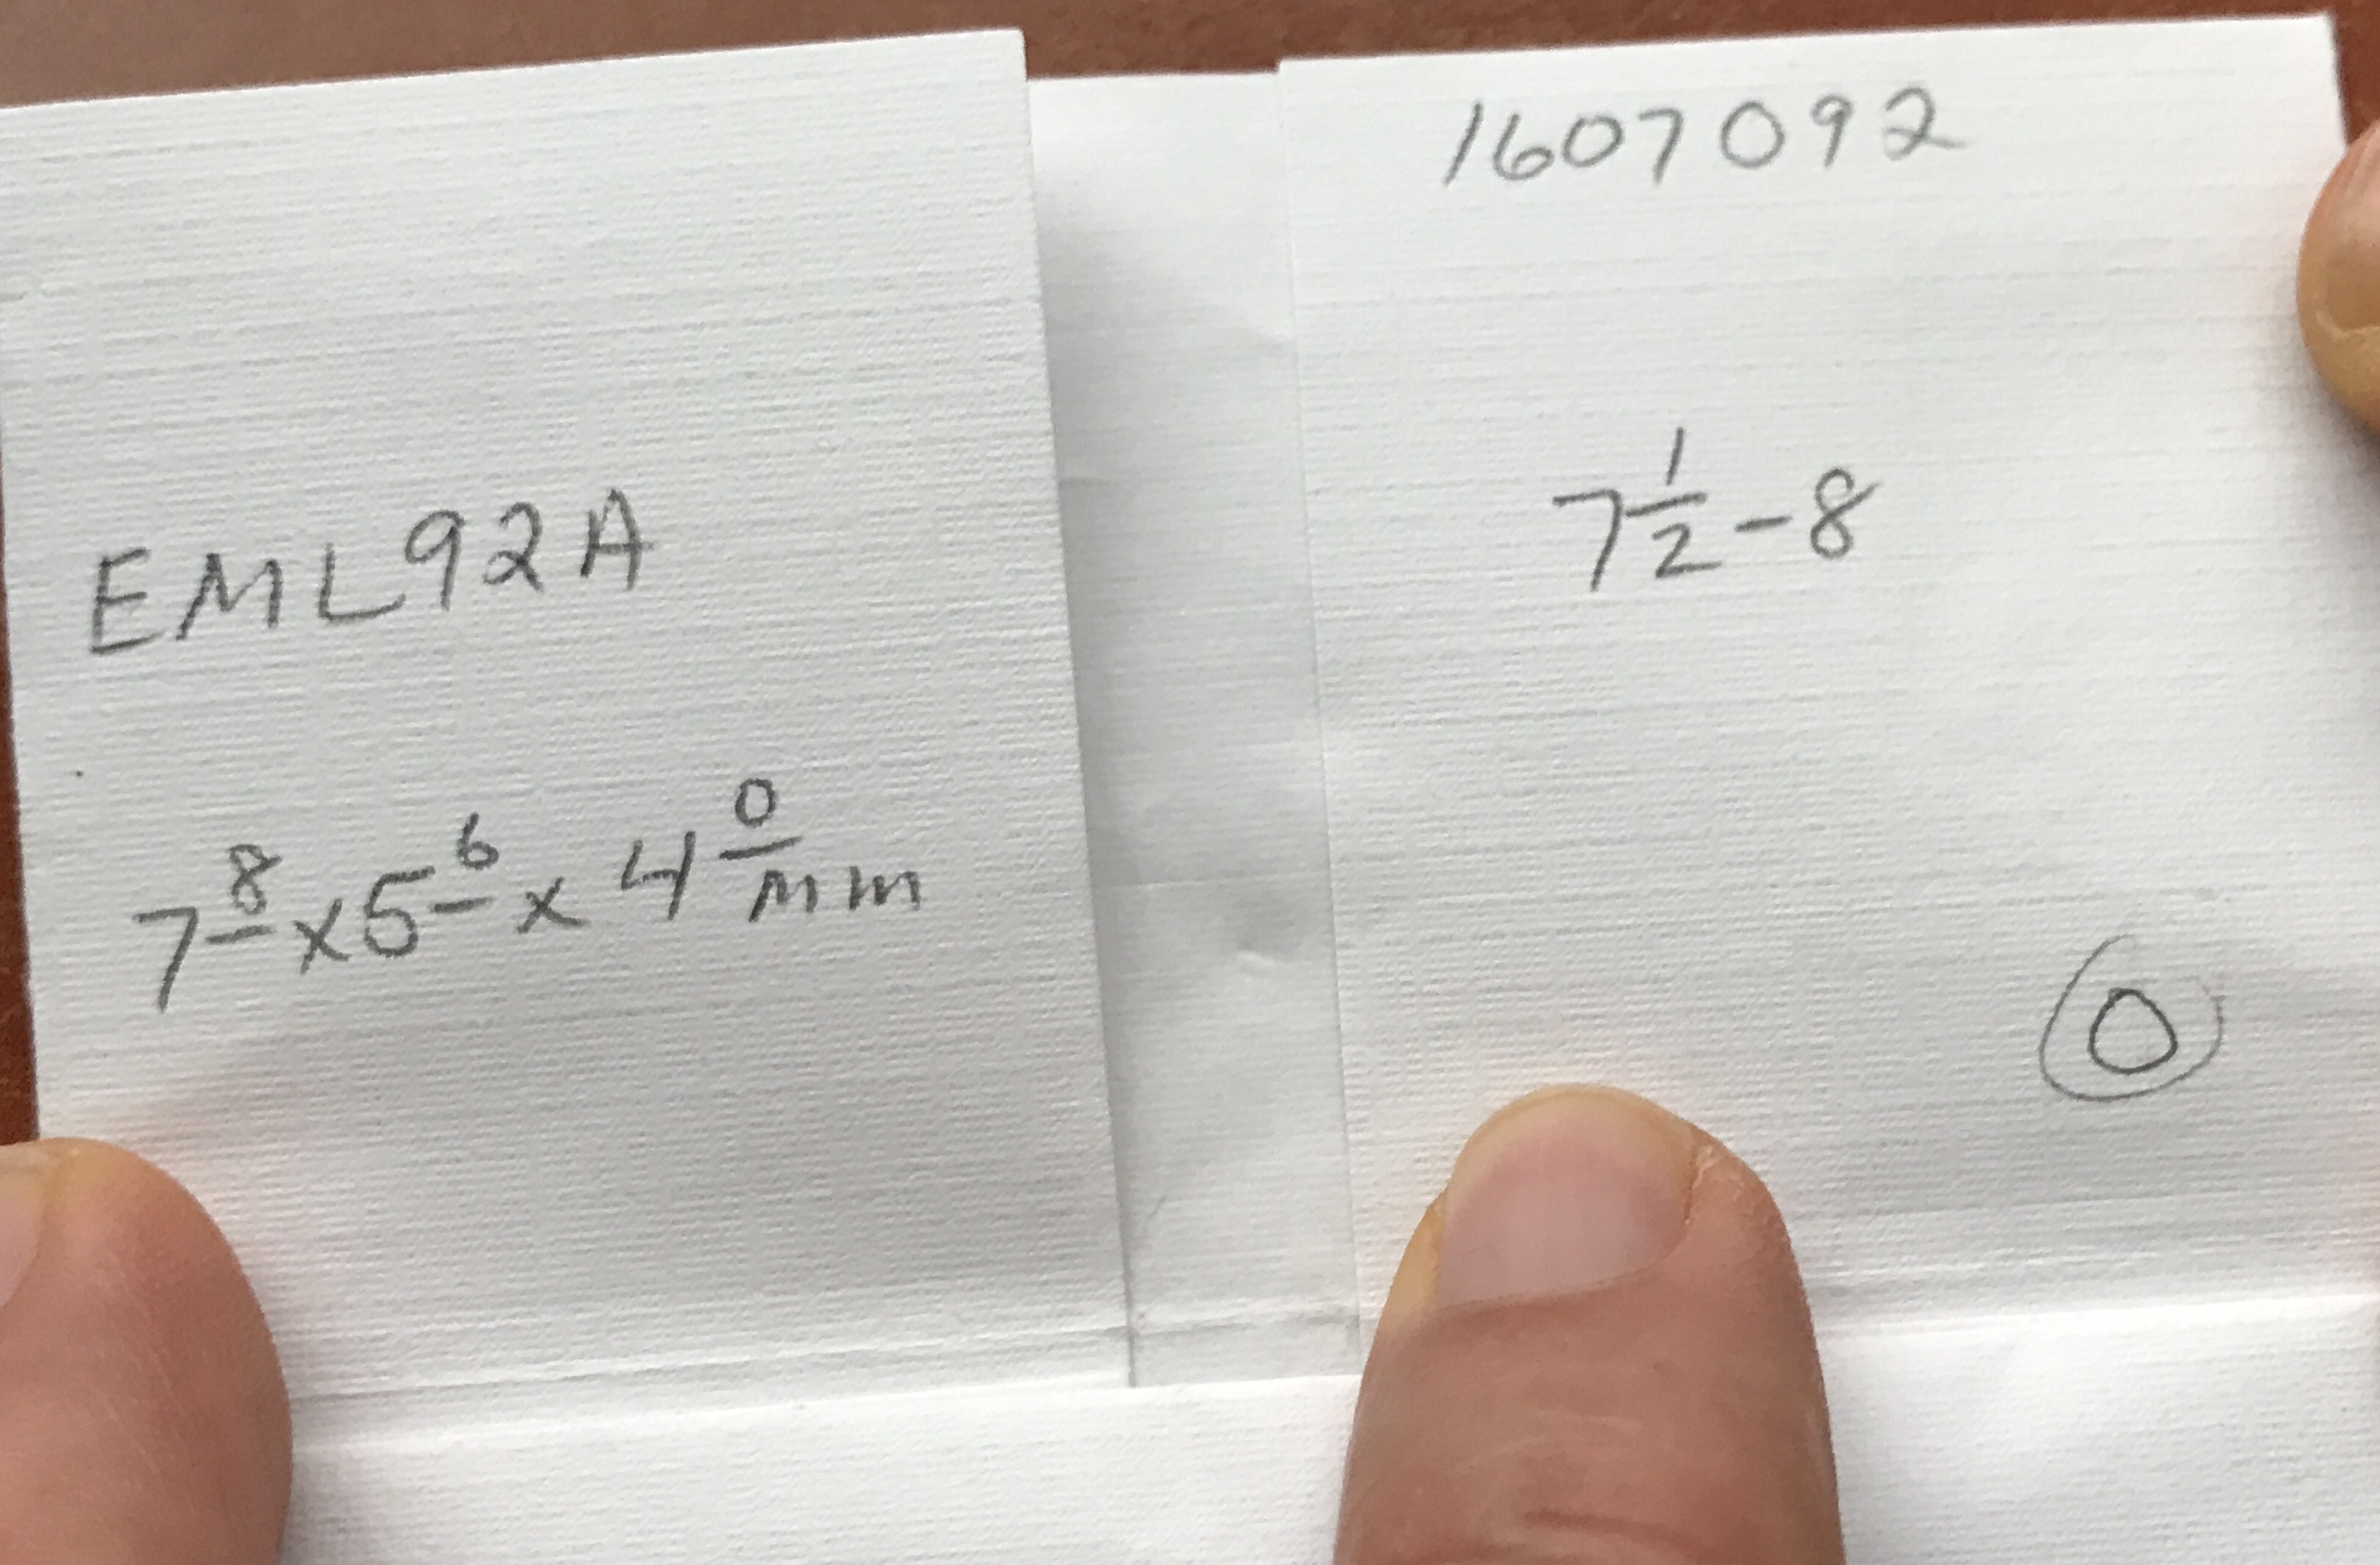 EML92A
7 8/ x 5 6/ x 4 0/mm
1607092
7 1/2 - 8
0